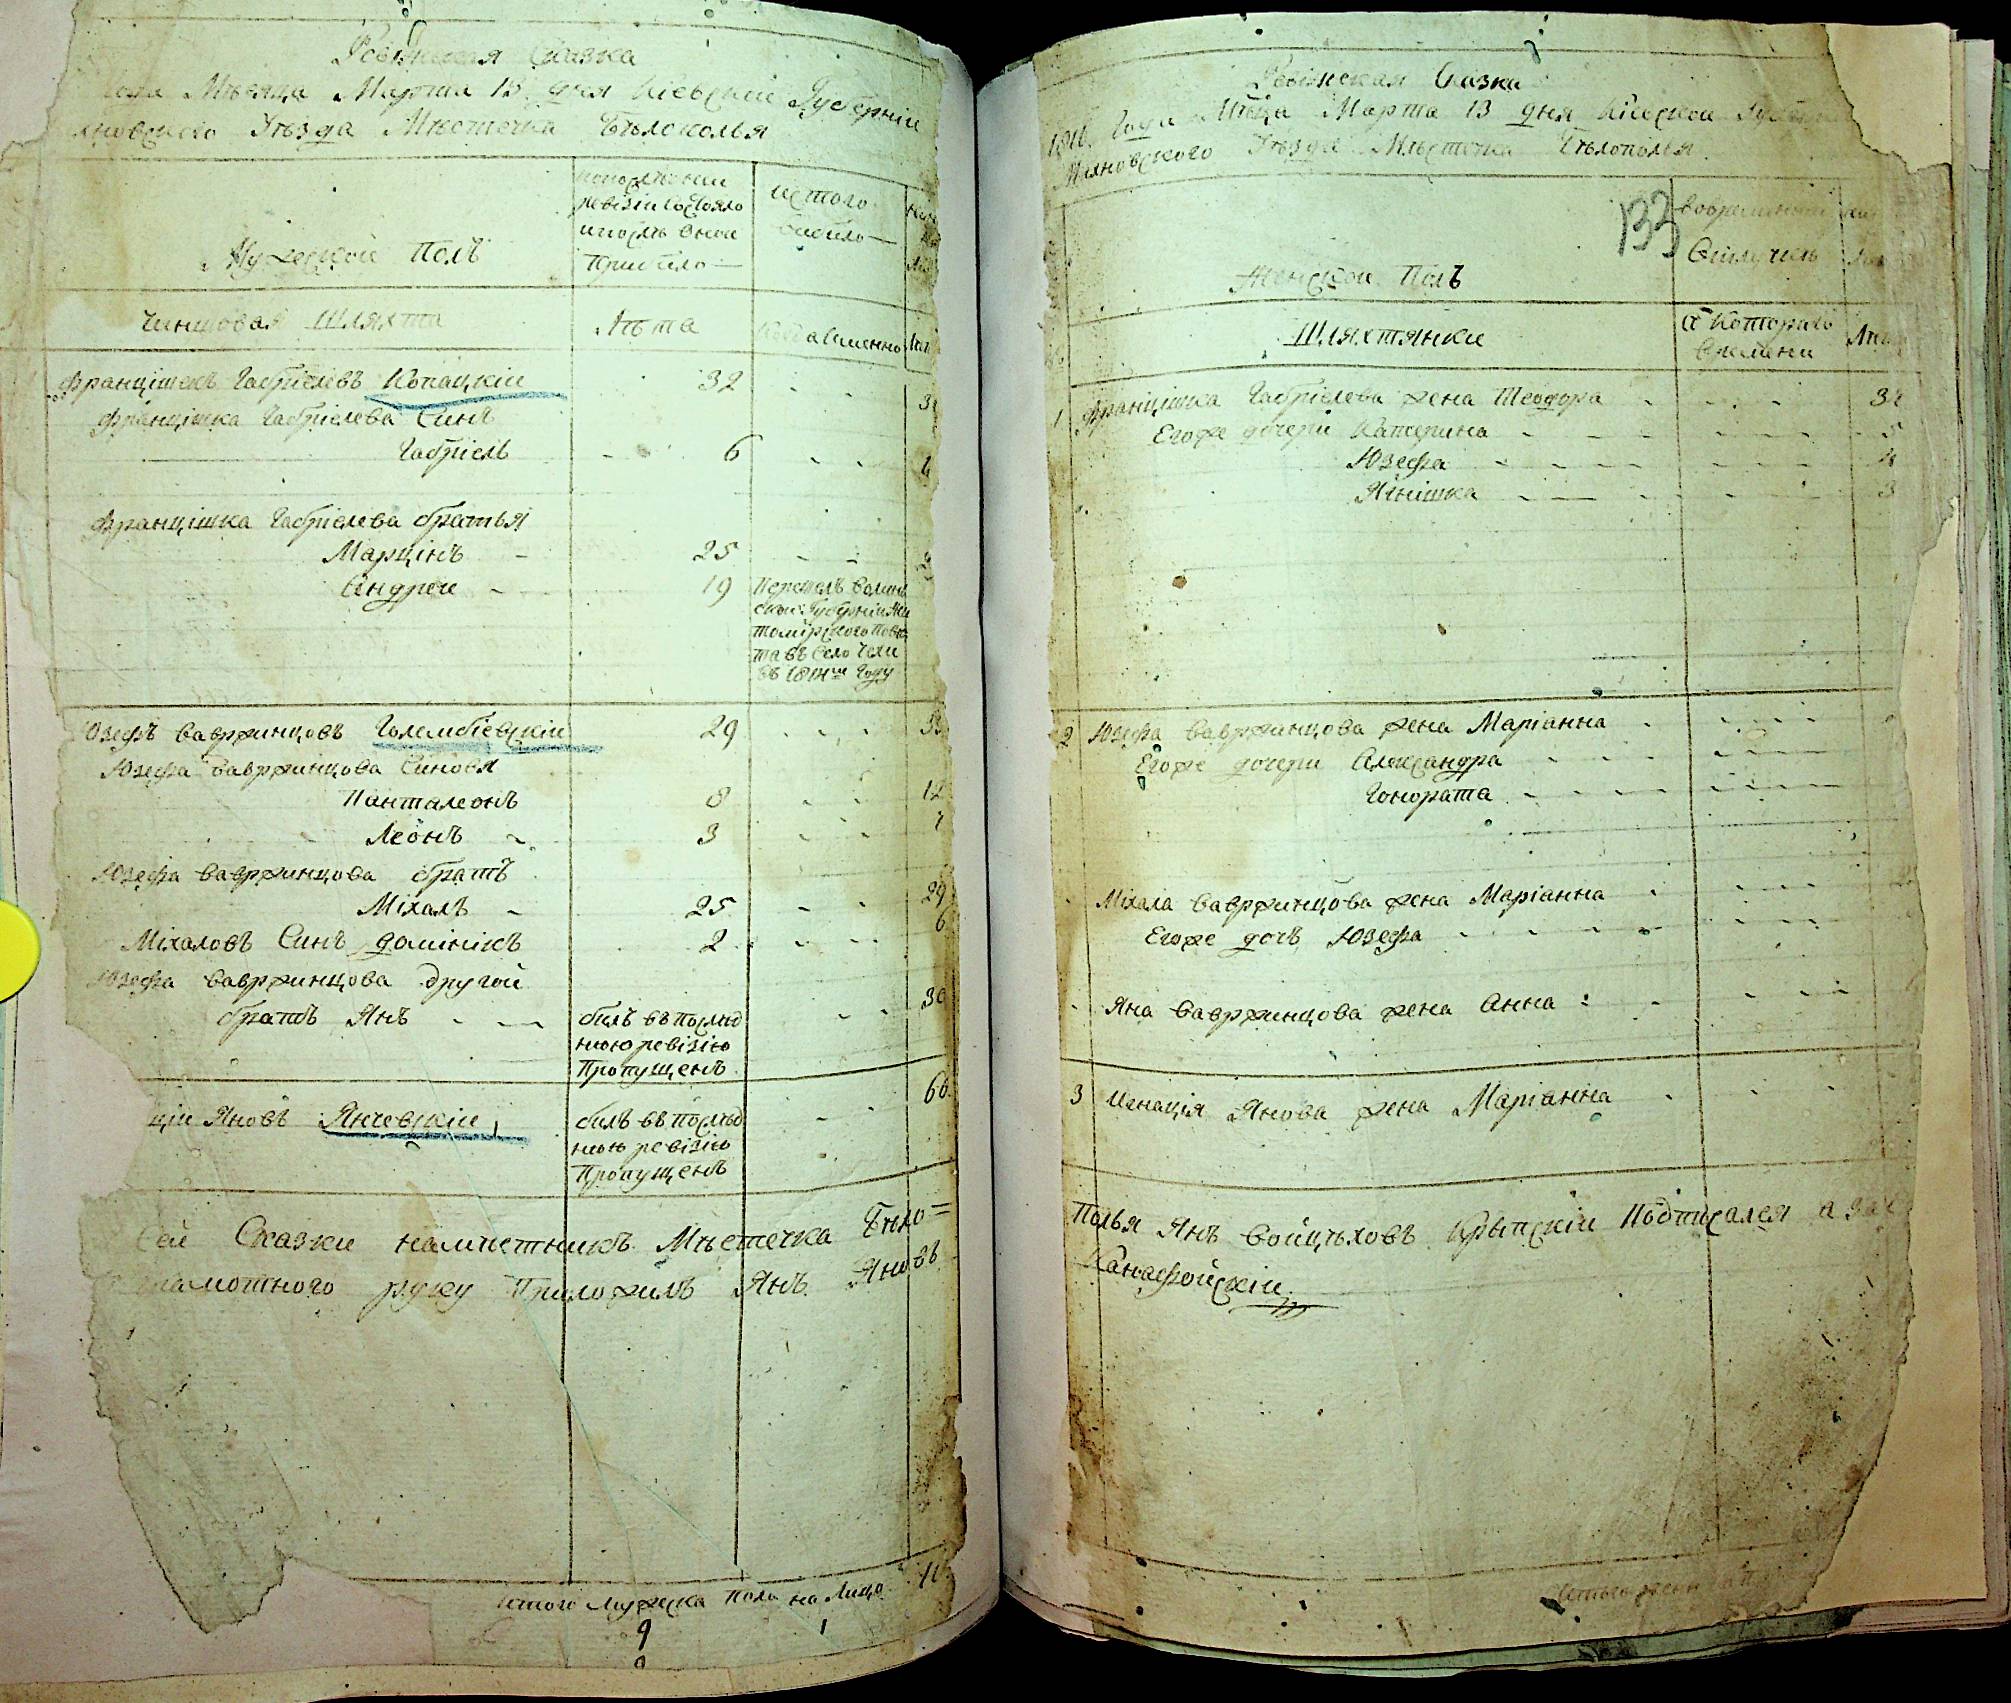 Ревижская Сказка
Года Мѣсяца Марта 13 дня Кіевской Губерніи
Уѣзда Мѣстечка Бѣлополья
Мужеской Полъ
попослѣдней
ревізіи состояло
ипослѣ Оной
Прибыло
изтого
выбыло
Чиншовая Шляхта
Лѣта
Когда имменно
Францішекъ Габріелевъ Копацкіи 32
Францішка Габріелева Синъ
Габріель 6
Францішка Габріелева братья
Марцінъ 25
Андрѣе 19
Перешелъ волин
ской Губерніи Жи
томірского Пове
та въ Село
въ 1814м Году
Юзефъ Вавржинцовъ Голембіевскіи 29 33
Юзефа Вавржинцова Синовя
Панталеонъ 8 12
Леонъ 3 7
Юзефа Вавржинцова братъ
Міхалъ 25 29
Міхаловъ Синъ домінікъ 2 6
Юзефа Вавржинцова другой
братъ Янъ 30
билъ въ послѣд
нюю ревізію
Пропущенъ
цій Яновъ Янчевскіи
билъ въ послѣд
нюю ревізію
Пропущенъ
Сей Сказки намѣстникъ Мѣстечка Бѣло=
руку Приложилъ Янъ Яновъ
Итого Мужеска Пола на Лицо 11
9 1
Ревижская Сказка
1816 Года Мѣсца Марта 13 дня Кіевской
Махновского Уѣзда Мѣстечка Бѣлополья
133
Женской Полъ
Вовременной
Отлучкѣ
Шляхтянки
С Которого
Времени
1 Францішка Габріелева жена Теодора
Егоже дочери Катерина 5
Юзефа 4
Ягнішка 3
2 Юзефа Вавржинцова жена Маріанна
Егоже дочери Александра
Гонората
Міхала Вавржинцова жена Маріанна
Егоже дочъ Юзефа
Яна Вавржинцова жена Анна
3 Игнація Янова жена Маріанна
Полья Янъ Войцѣховъ Крыпскіи Подписался а за
Канафойскіи